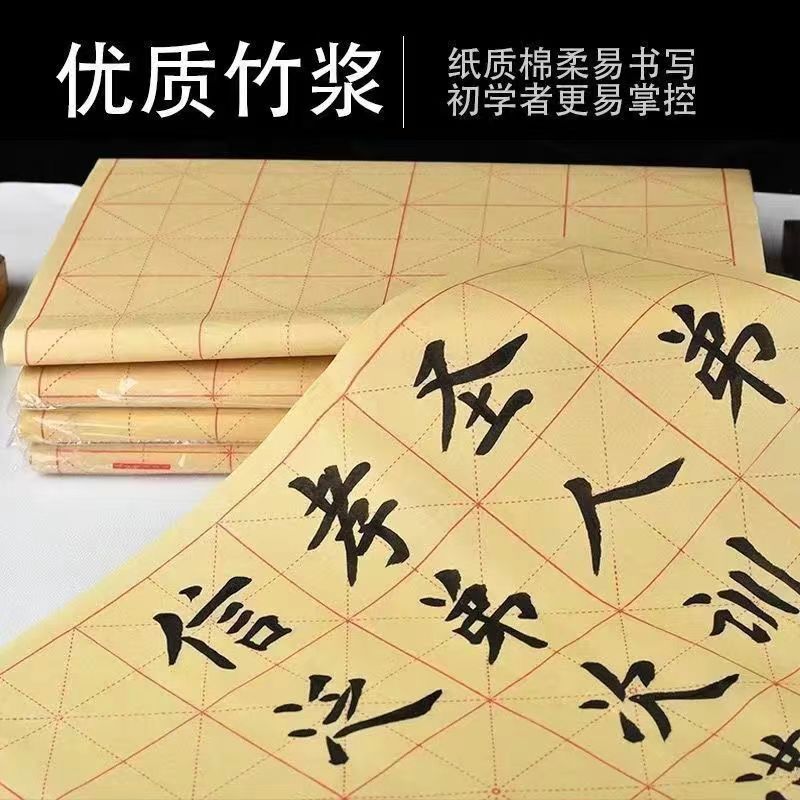 优质竹浆
纸质棉柔易书写
初学者更易掌控
弟
圣人训
孝弟次
信泛